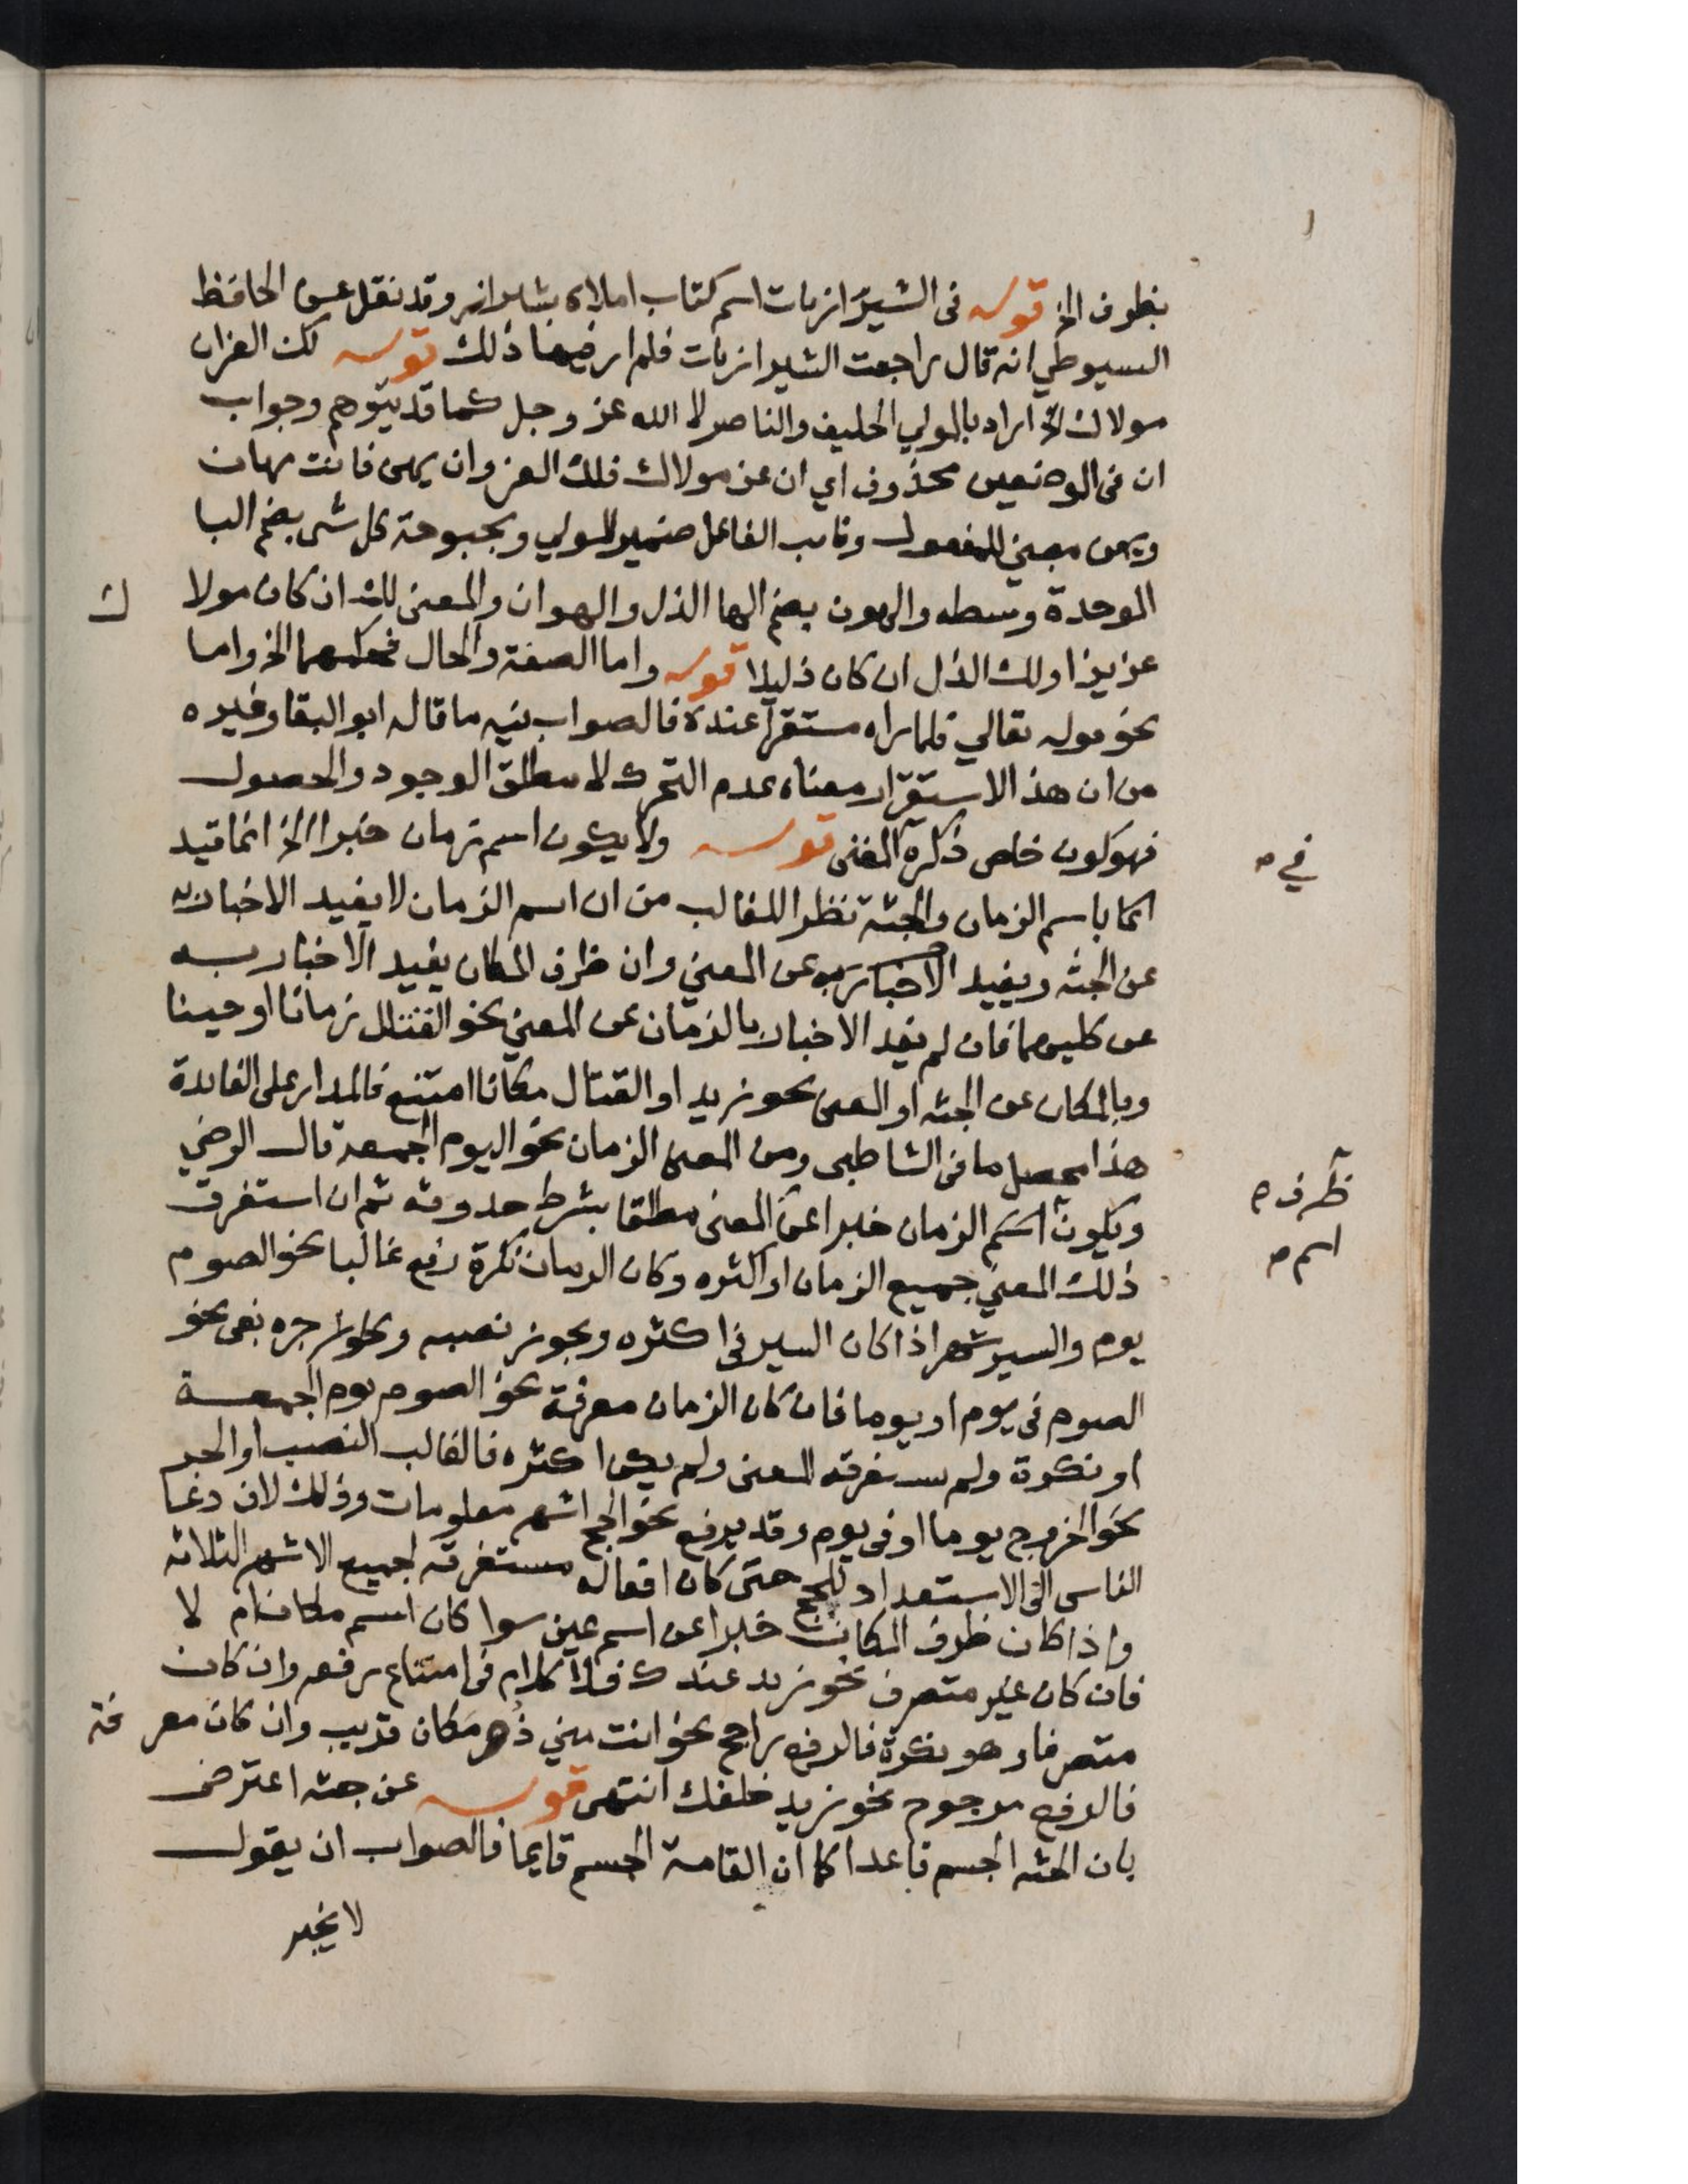 بظرف الخ قوله فى الشيرازيات اسم كتاب املاه بشيراز وقد نقل عن الحافظ
السيوطي انه قال راجعت الشيرازيات فلم ار فيها ذلك قوله لك العز ان
مولاك الخ اراد بالمولي الحليف والناصر لا الله عز وجل كما قد يتوهم وجواب
ان فى الموضعين محذوف اي ان عز مولاك فلك العز وان يهن فانت مهان
ويهن مبني للمفعول ونائب الفاعل ضمير المولي وبحبوحة كل شى بضم البا
الموحدة وسطه والهون بضم الها الذل والهوان والمعنى لك ان كان مولا ك
عزيزا ولك الذل ان كان ذليلا قوله واما الصفة والحال فحكمهما الخ واما
نحو قوله تعالي فلما راه مستقرا عنده فالصواب فيه ما قاله ابو البقا وغيره
من ان هذا الاستقرار معناه عدم التحرك لا مطلق الوجود والحصول
فهو كون خاص ذكره المغنى قوله ولا يكون اسم زمان خبرا الخ انما قيد
في
كما باسم الزمان والجثة نظرا للغالب من ان اسم الزمان لا يفيد الاخبار به
عن الجثة ويفيد الاخبار به عن المعني وان ظرف المكان يفيد الاخبار به
عن كليهما فان لم يفد الاخبار بالزمان عن المعني نحو القتال زمانا او حينا
وبالمكان عن الجثه او المعنى نحو زيد او القتال مكانا امتنع فالمدار على الفايدة
هذا محصل ما فى الشاطبى ومن المعنى الزمان نحو اليوم الجمعة قال الرضي
ظرف
ويكون اسم الزمان خبرا عن المعنى مطلقا بشرط حدوثه ثم ان استغرق
اسم
ذلك المعني جميع الزمان او اكثره وكان الزمان نكرة رفع غالبا نحو الصوم
يوم والسير شهر اذا كان السير فى اكثره ويجوز نصبه ويجوز جره بفى نحو
الصوم فى يوم او يوما فان كان الزمان معرفة نحو الصوم يوم الجمعة
او نكرة ولم يستغرقه المعنى ولم يكن اكثره فالغالب النصب او الجر
نحو الخروج يوما او فى يوم وقد يرفع نحو الحج اشهر معلومات وذلك لان دعا
الناس الى الاستعداد للحج حتى كان افعاله مستغرقة لجميع الاشهر الثلاثه
واذا كان ظرف المكان خبرا عن اسم عين سوا كان اسم مكان ام لا
فان كان غير متصرف نحو زيد عندك فلا كلام فى امتناع رفعه وان كان
متصرفا وهو نكرة فالرفع راجح نحو انت مني مكان قريب وان كان معرفة
فالرفع مرجوح نحو زيد خلفك انتهى قوله عن جثه اعترض
بان الجثه الجسم قاعدا كما ان القامة الجسم قايما فالصواب ان يقول
لا يخبر